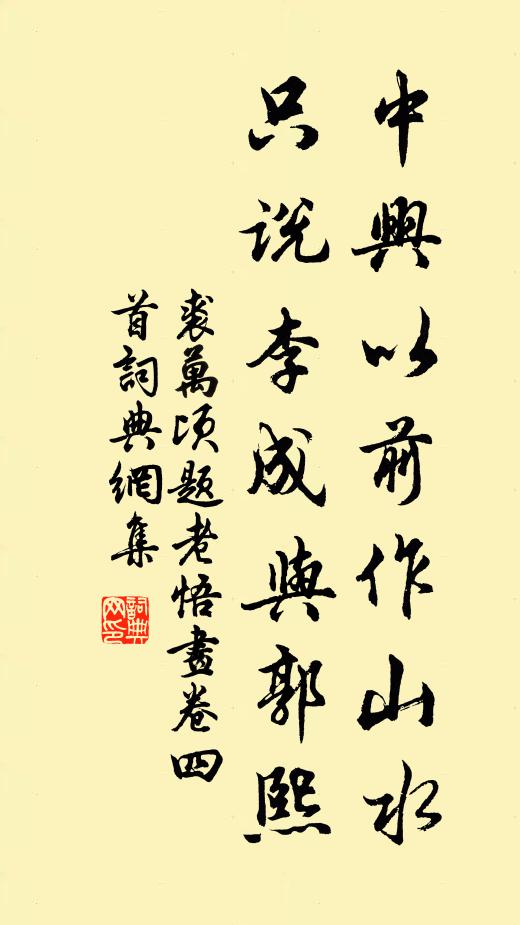 中興以前作山水
只説李成與郭熙
裘萬頃題老悟畫卷四
首詞典網集
詞典
网印